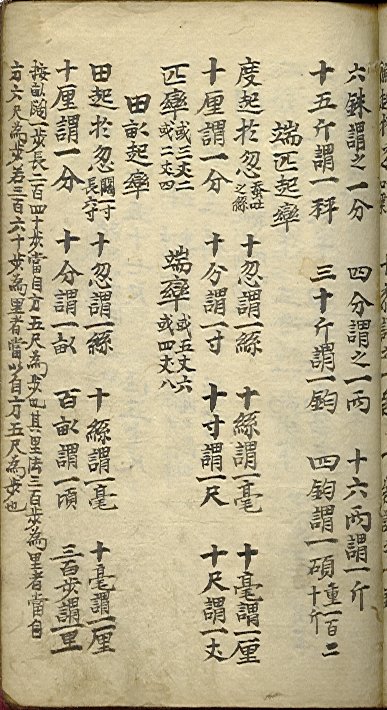 六銖謂之一分 四分謂之一兩 十六兩謂一斤
十五斤謂一秤 三十斤謂一鈞 四鈞謂一碩 重一百二十斤
端匹起率
度起於忽 蚕吐之絲 十忽謂一絲 十絲謂一毫 十毫謂一厘
十厘謂一分 十分謂一寸 十寸謂一尺 十尺謂一丈
匹率 或三丈二 或二丈四 端率 或五丈六 或四丈八
田畝起率
田起於忽 闊一寸 長 寸 十忽謂一絲 十絲謂一毫 十毫謂一厘
十厘謂一分 十分謂一畝 百畝謂一頃 三百步謂一里
按畝闊一步長二百四十步當自方五尺為步也其里法三百步為里者當自
方六尺為步若三百六十步為里者當以自方五尺為步也